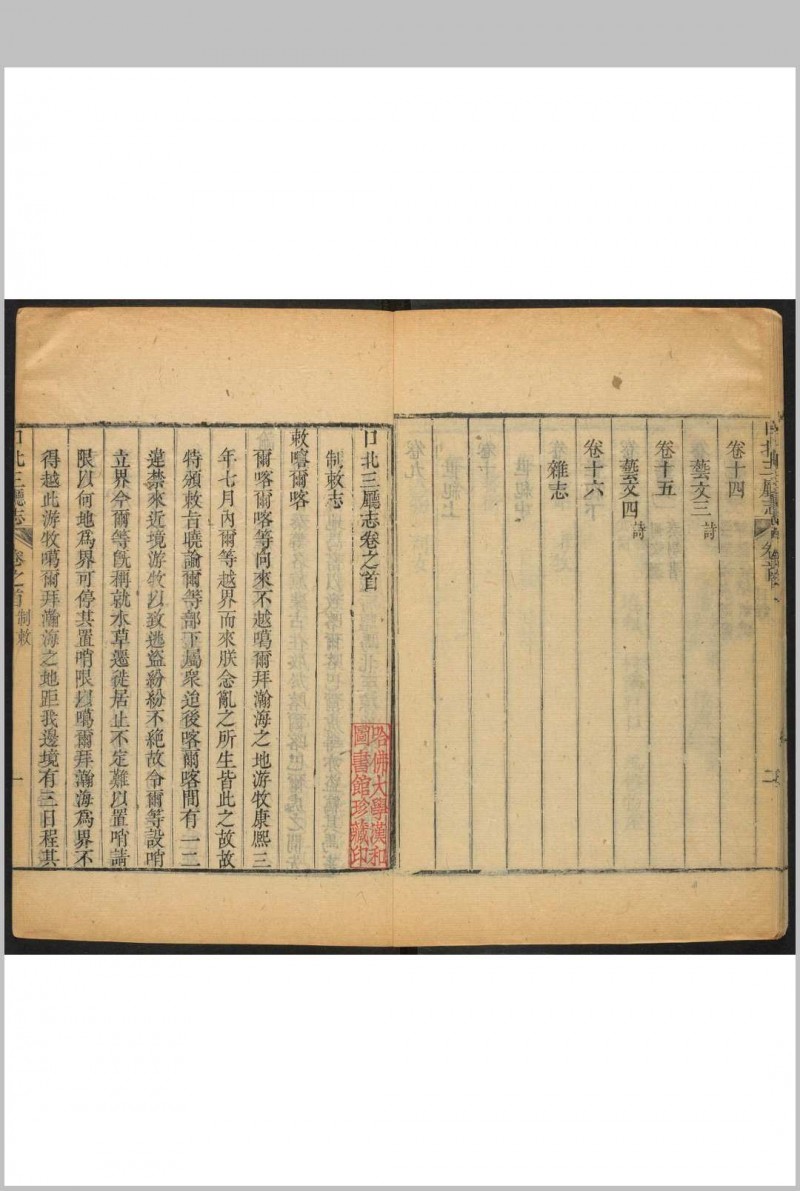 口北三廳志
卷首
二
卷十四
藝文三 詩
卷十五
藝文四 詩
卷十六
雜志
口北三廳志卷之首
制敕志
敕喀爾喀
爾喀爾喀等向來不越噶爾拜瀚海之地游牧康熙三
年七月內爾等越界而來朕念亂之所生皆此之故故
特頒敕旨曉諭爾等部下屬衆迨後喀爾喀間有一二
違禁來近境游牧以致逃盜紛紛不絶故令爾等設哨
立界今爾等旣稱就水草遷徙居止不定難以置哨請
限以何地爲界可停其置哨限以噶爾拜瀚海爲界不
得越此游牧噶爾拜瀚海之地距我邊境有三日程其
口北三廳志
卷之首 制敕
一
哈佛大學漢和
圖書館珍藏印